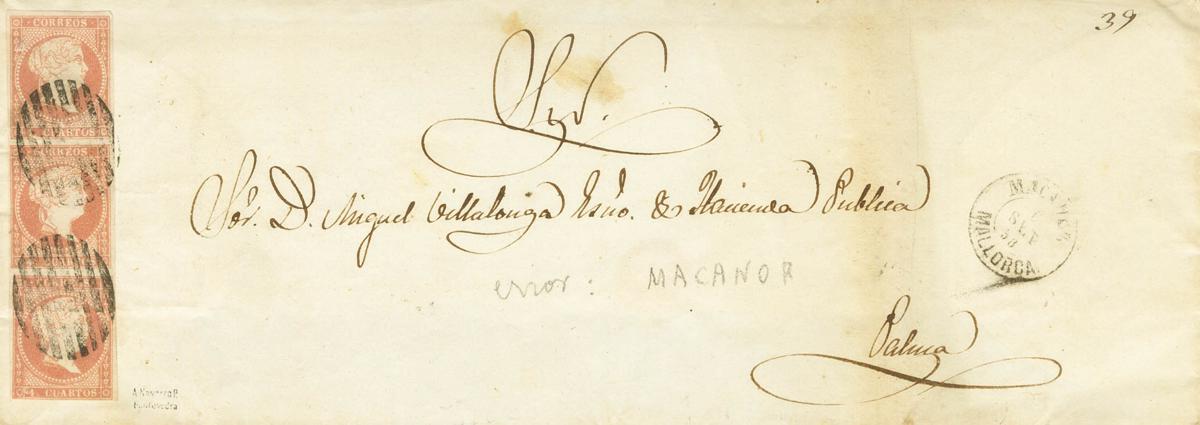 39
CORREOS
CUARTOS
CORREOS
CUARTOS
Sor. D. Miguel Villalonga Esño. de Hacienda Publica
MALLORCA
SET
58
error: MACANOR
Palma
A. Navarro P.
Pontevedra